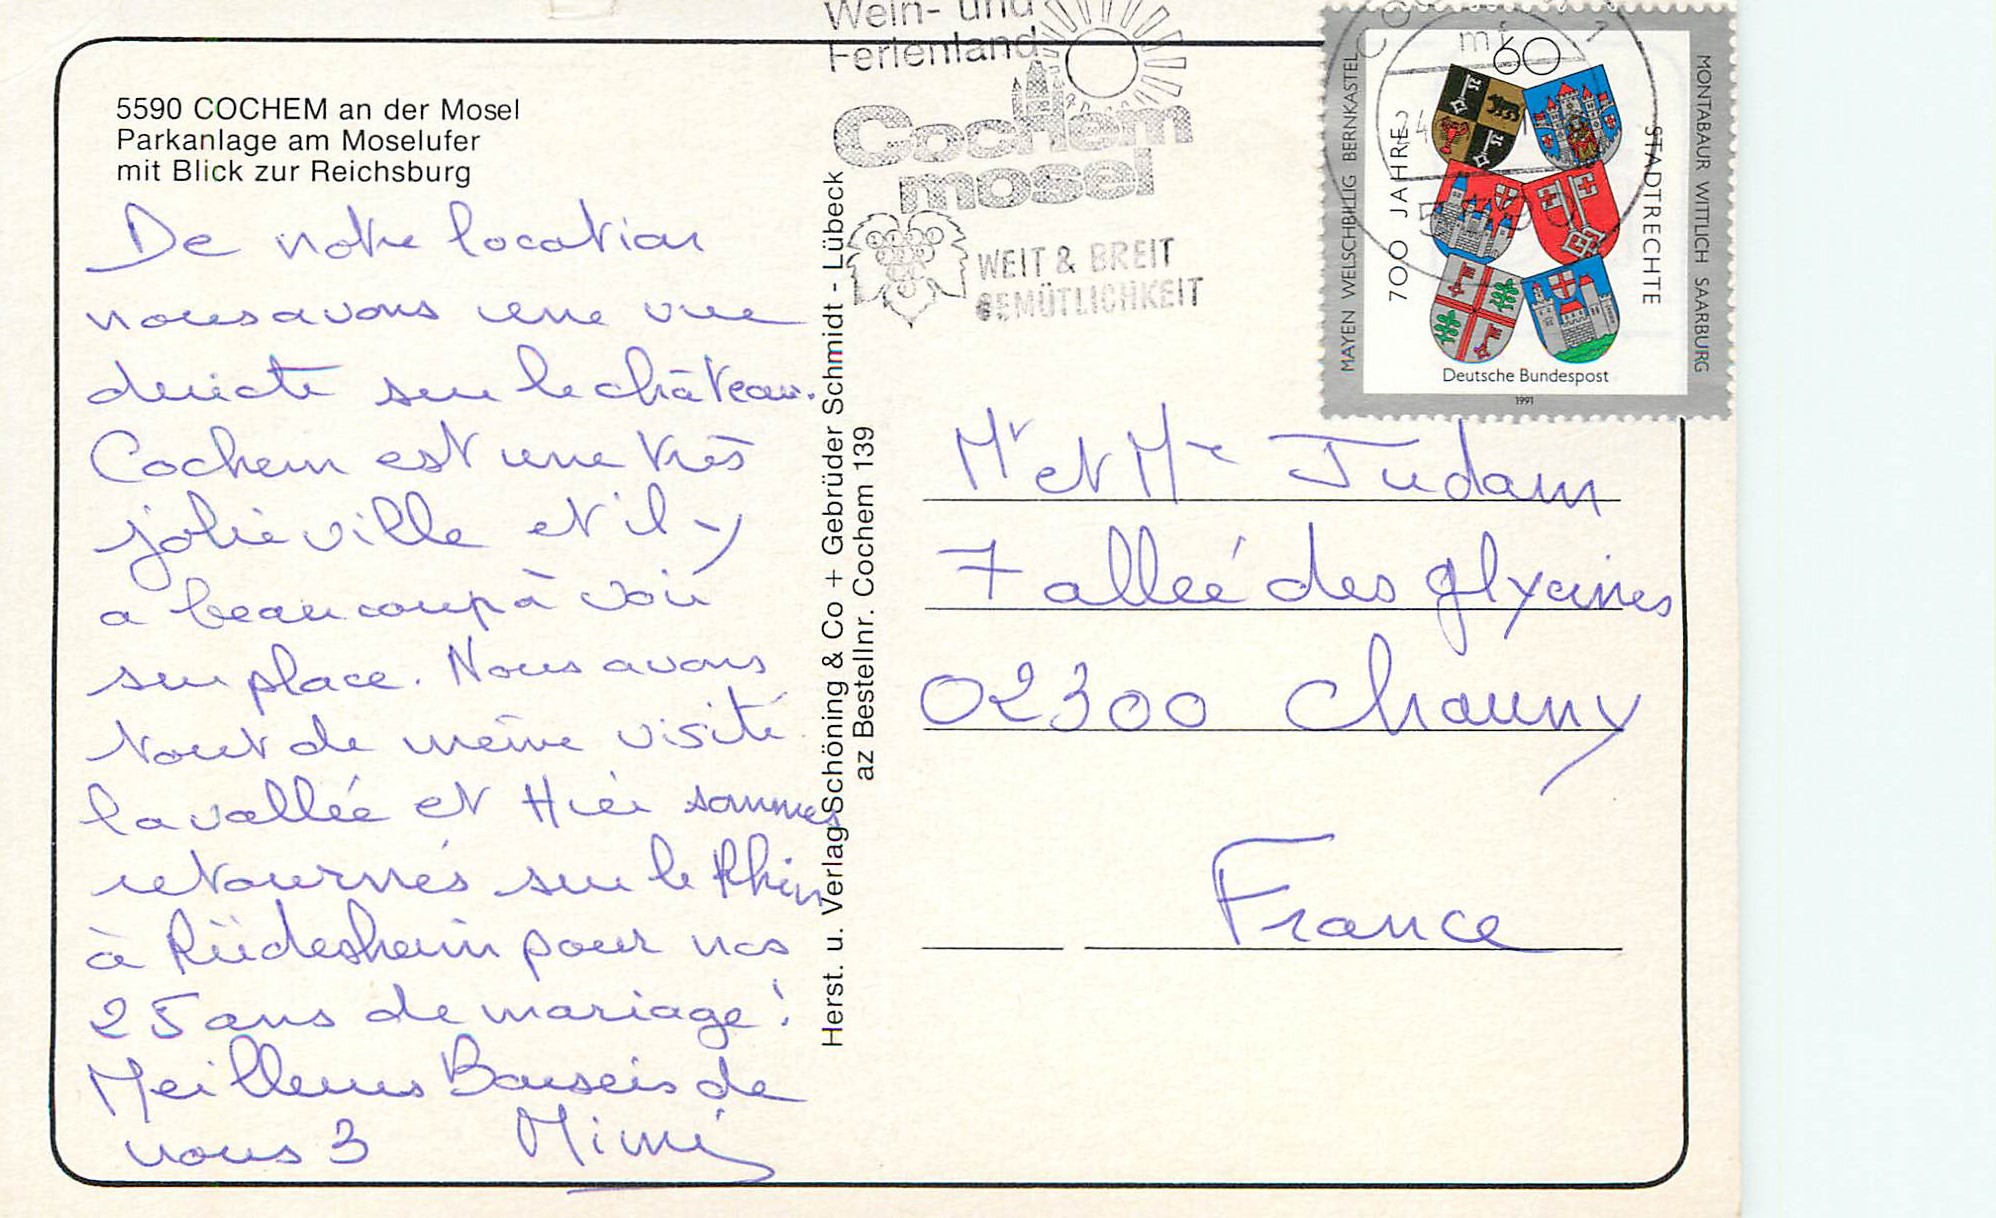 5590 COCHEM an der Mosel
Parkanlage am Moselufer
mit Blick zur Reichsburg
De notre location
nous avons une vue
directe sur le château.
Cochem est une très
jolie ville et il y
a beaucoup à voir
sur place. Nous avons
tout de même visité
la vallée et Hier sommes
retournés sur le Rhin
à Rüdesheim pour nos
25 ans de mariage !
Meilleurs Baisers de
nous 3 Mimi
Herst. u. Verlag Schöning & Co + Gebrüder Schmidt - Lübeck
az Bestellnr. Cochem 139
Wein- und
Ferienland
Cochem
mosel
WEIT & BREIT
GEMÜTLICHKEIT
60
MAYEN WELSCHBILLIG BERNKASTEL
700 JAHRE
STADTRECHTE
MONTABAUR WITTLICH SAARBURG
Deutsche Bundespost
1991
Mr et Me Judam
7 allée des glycines
02300 Chauny
France